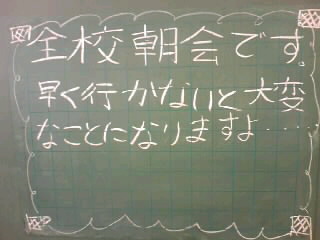 全校朝会です。
早く行かないと大変
なことになりますよ‥‥